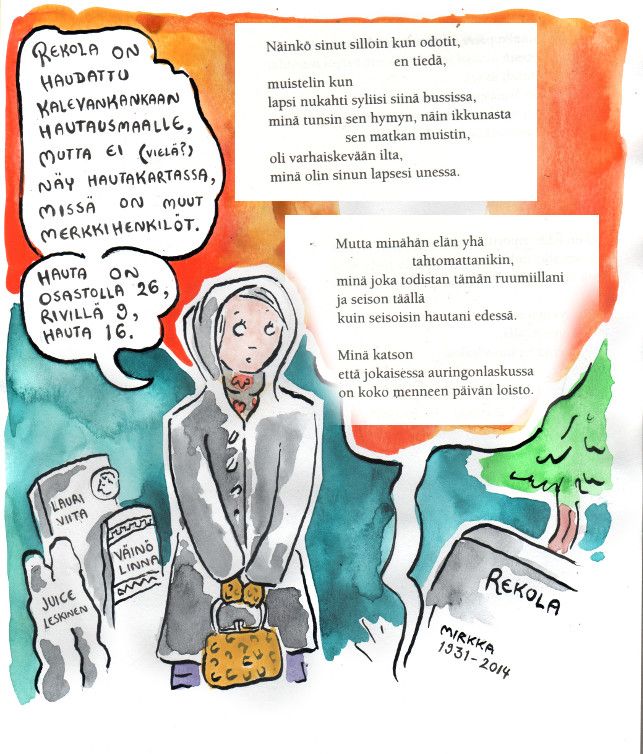 REKOLA ON
HAUDATTU
KALEVANKANKAAN
HAUTAUSMAALLE,
MUTTA EI (VIELÄ?)
NÄY HAUTAKARTASSA,
MISSÄ ON MUUT
MERKKIHENKILÖT.
HAUTA ON
OSASTOLLA 26,
RIVILLÄ 9,
HAUTA 16.
Näinkö sinut silloin kun odotit,
en tiedä,
muistelin kun
lapsi nukahti syliisi siinä bussissa,
minä tunsin sen hymyn, näin ikkunasta
sen matkan muistin,
oli varhaiskevään ilta,
minä olin sinun lapsesi unessa.
Mutta minähän elän yhä
tahtomattanikin,
minä joka todistan tämän ruumiillani
ja seison täällä
kuin seisoisin hautani edessä.
Minä katson
että jokaisessa auringonlaskussa
on koko menneen päivän loisto.
LAURI
VIITA
VÄINÖ
LINNA
JUICE
LESKINEN
REKOLA
MIRKKA
1931-2014